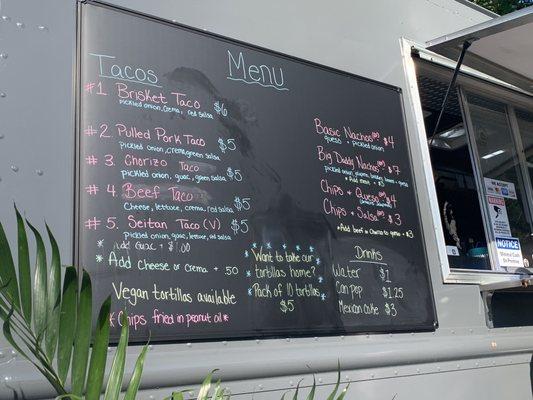 Menu
Tacos
#1 Brisket Taco $6
pickled onion, crema, red salsa
#2 Pulled Pork Taco $5
Pickled onion, crema, green salsa
#3 Chorizo Taco $5
pickled onion, guac, green salsa
#4 Beef Taco $5
Cheese, lettuce, crema, red salsa
#5. Seitan Taco (V) $5
pickled onion, guac, lettuce, red salsa
* Add Guac + $1.00
* Add Cheese or Crema + 50
Vegan tortillas available
* Chips fried in peanut oil *
Basic Nachos $4
queso + pickled onion
Big Daddy Nachos $7
* Add meat + $3
Chips + Queso $4
Chips + Salsa $3
* Add beef or Chorizo to queso + $3
Want to take our
tortillas home?
Pack of 10 tortillas
$5
Drinks
Water $1
Can pop $1.25
Mexican coke $3
NOTICE